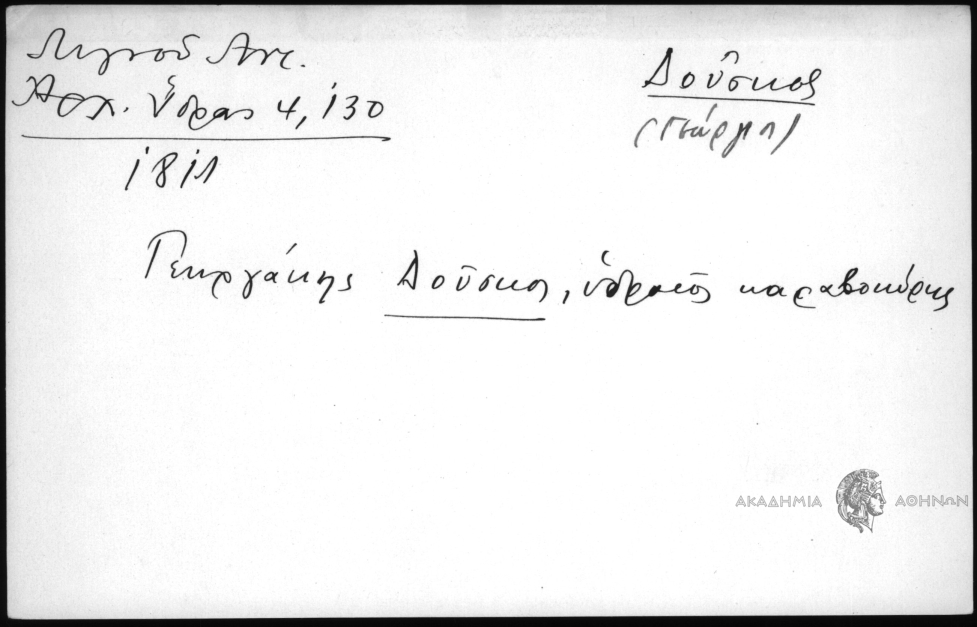 Λιγνού Αντ.
Αρχ. Ύδρας 4, 130
1811
Δούσκος
(Γεώργιος)
Γεωργάκης Δούσκος, υδραίος καραβοκύρης
ΑΚΑΔΗΜΙΑ ΑΘΗΝΩΝ